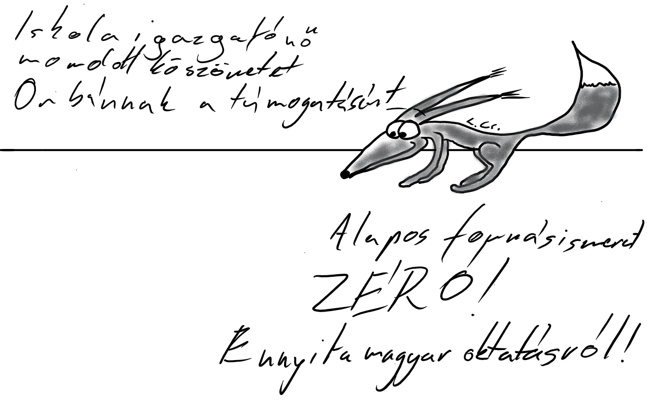 Iskola igazgatónő
mondott köszönetet
Orbánnak a támogatásért
L.Cs.
Alapos forrásismeret
ZÉRÓ!
Ennyit a magyar oktatásról!!